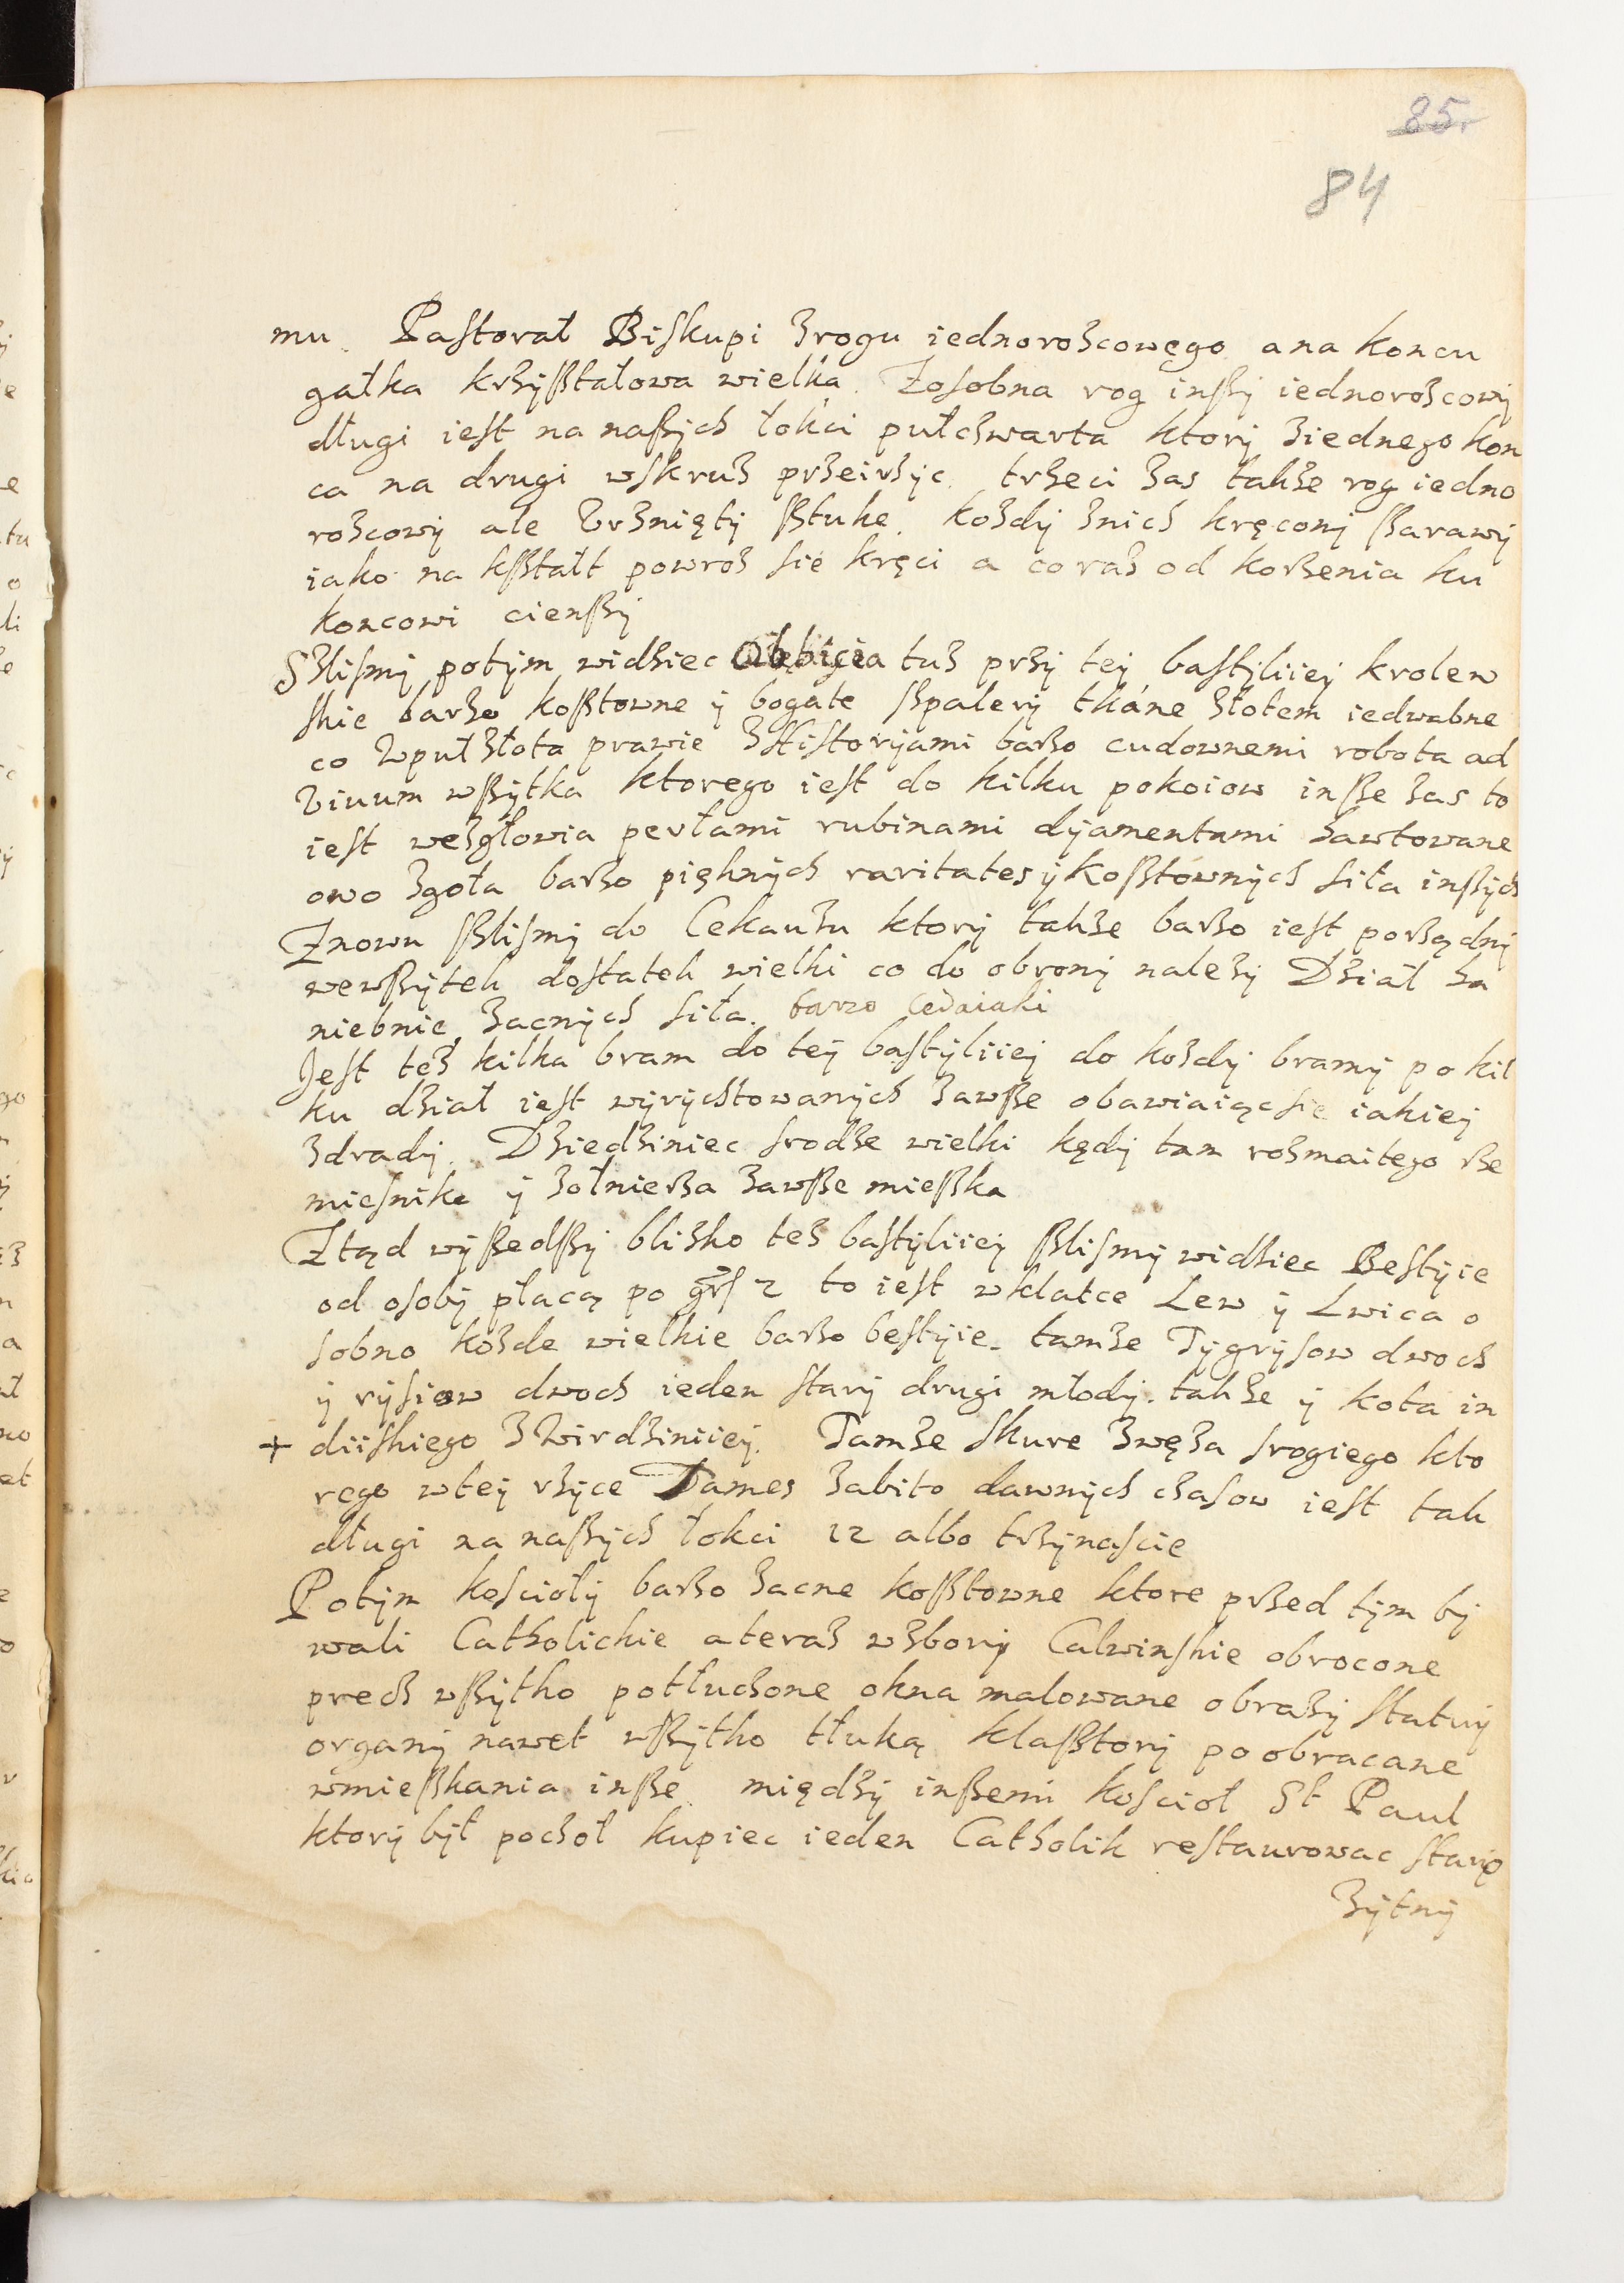 85r
84
mu. Pastorał Biskupi z rogu iednorozcowego a na koncu
gałka krzyształowa wielka. Zosobna rog inszy iednorozcowy
długi iest na naszych łokci pułczwarta ktory ziednego kon
ca na drugi wskruz przeirzyc. trzeci zas takze rog iedno
rozcowy ale Vrznięty sztuke. kozdy znich kręcony szarawy
iako na ksztalt powroz sie kręci a coraz od korzenia ku
koncowi cienszy
Szlismy potym widziec Obbicia tuz przy tey bastyliiey krolew
skie barzo kosztowne y bogate szpalery tkáne złotem iedwabne
co Vpuł złota prawie z Historyjami barzo cudownemi robota ad
Viuum wszytka ktorego iest do kilku pokoiow insze zas to
iest wezgłowia perłami rubinami dyamentami hawtowane
owo zgoła barzo pięknych raritates y kosztownych siła inszych
Znowu szlismy do Cekauzu ktory takze barzo iest porządny
wewszytek dostatek wielki co do obrony nalezy Dział ha
niebnie zacnych siła. barzo
Jest tez kilka bram do tey bastyliiey do kozdy bramy po kil
ku dział iest wyrychtowanych zawsze obawiaiąc sie iakiey
zdrady. Dziedziniec srodze wielki kędy tam rozmaitego rze
miesnika y zołnierza zawsze mieszka
Ztąd wyszedszy blizko tez bastyliiey szlismy widziec Bestyie
od osoby płacą po grs 2 to iest w klatce Lew y Lwica o
sobno kozde wielkie barzo bestyie. tamze Tygrysow dwoch
y rysiow dwoch ieden stary drugi młody. takze y kota in
+ diiskiego z Wirdziniiey. Tamze skure zwęza srogiego kto
rego wtey rzyce Tames zabito dawnych czasow iest tak
długi na naszych łokci 12 albo trzynascie
Potym kescioły barzo zacne kosztowne ktore przed tym by
wali Catholickie a teraz w zbory Calwinskie obrocone
precz wszytko potłuczone okna malowane obrazy statuy
organy nawet wszytko tłuką klasztory poobracane
wmieszkania insze. między inszemi kosciol St Paul
ktory był poczoł kupiec ieden Catholik restaurowac staro
zytny